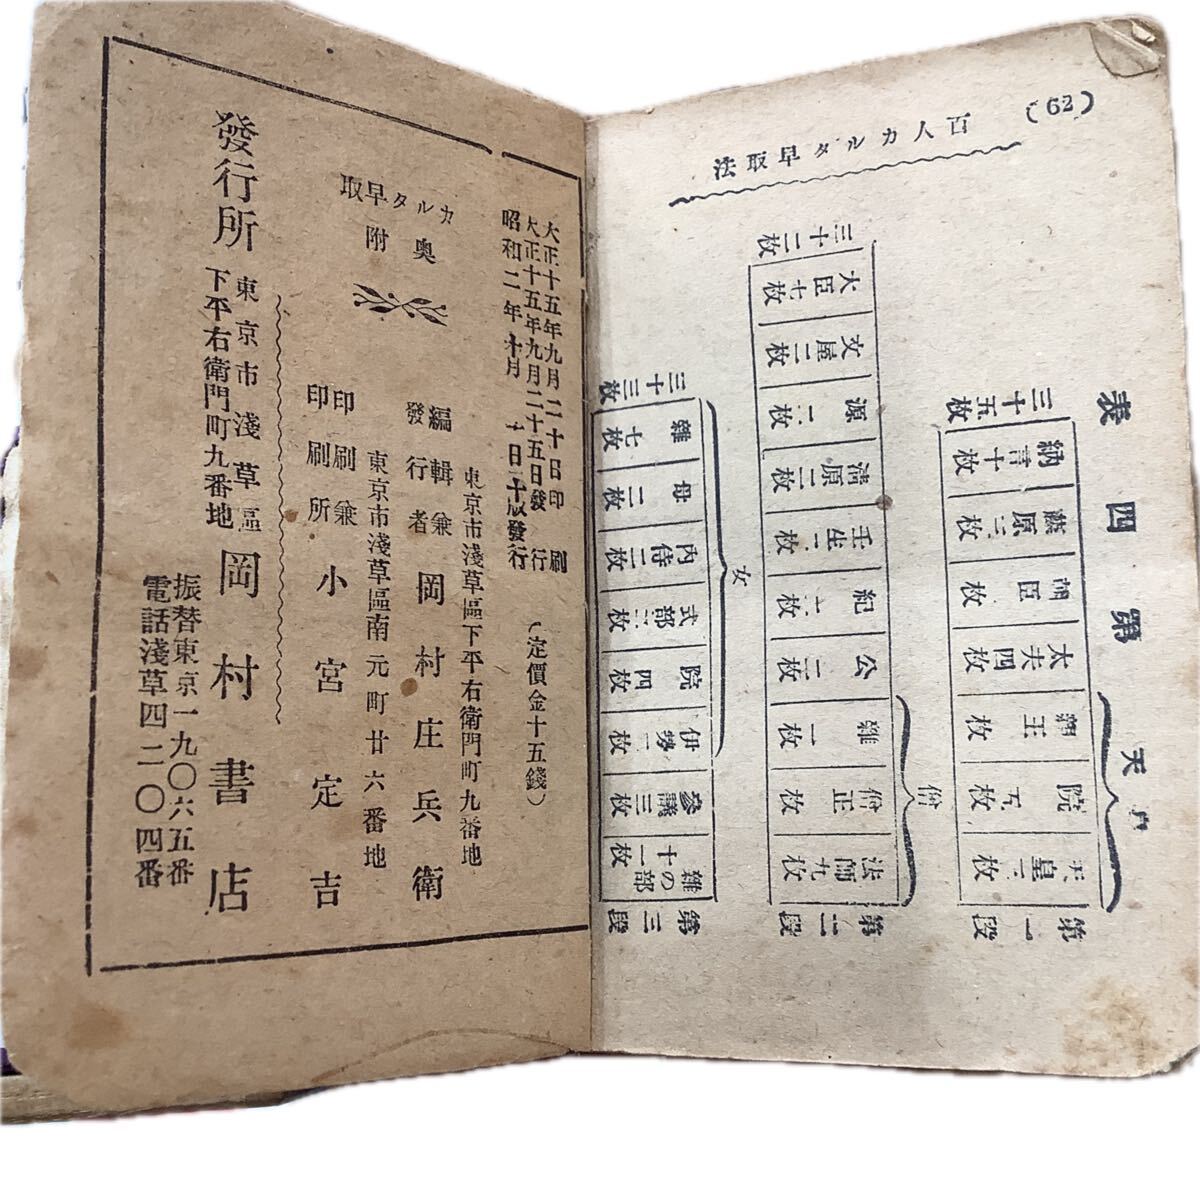 (62)
百人カルタ早取法
表四第
天
三十五枚
納言十枚
藤原三枚
朝臣枚
太夫四枚
親王枚
院五枚
天皇枚
第一段
三十二枚
大臣七枚
文屋二枚
源枚
清原枚
壬生二枚
紀枚
公二枚
雑一枚
僧正枚
法師九枚
僧
第二段
三十三枚
雑七枚
母二枚
内侍二枚
式部枚
院四枚
伊勢一枚
参議三枚
雑の部十一枚
女
第三段
大正十五年九月二十日印刷
大正十五年九月二十五日發行
昭和二年十月 十日二十版發行
(定價金十五錢)
カルタ早取
奥附
東京市淺草區下平右衛門町九番地
編輯兼發行者 岡村庄兵衛
東京市淺草區南元町廿六番地
印刷兼印刷所 小宮定吉
發行所
東京市淺草區下平右衛門町九番地
岡村書店
振替東京一九〇六五番
電話淺草四二〇四番